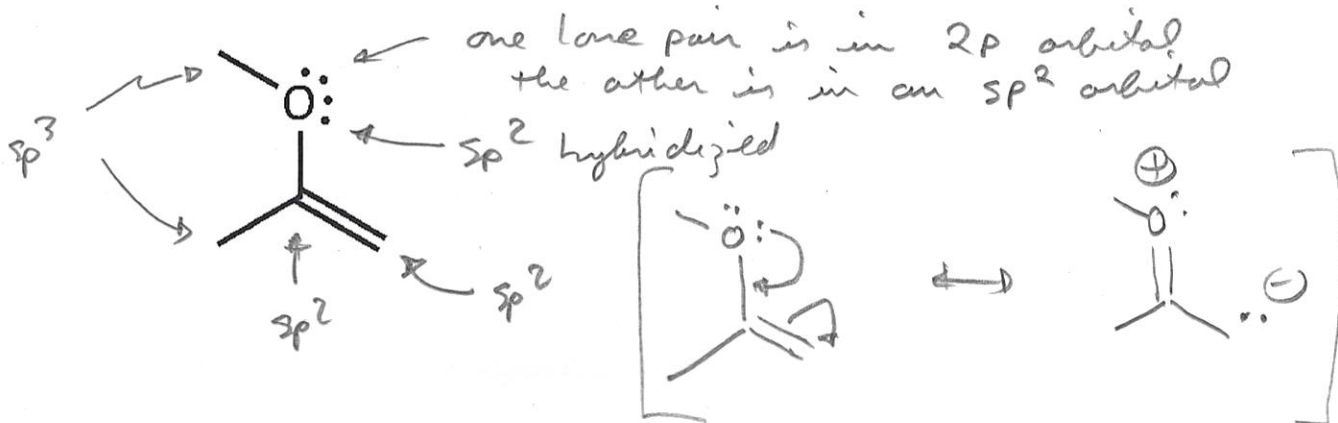 one lone pair is in 2p orbital
the other is in an sp² orbital
sp³
O
sp² hybridized
sp²
sp²
O
O
⊕
⊖